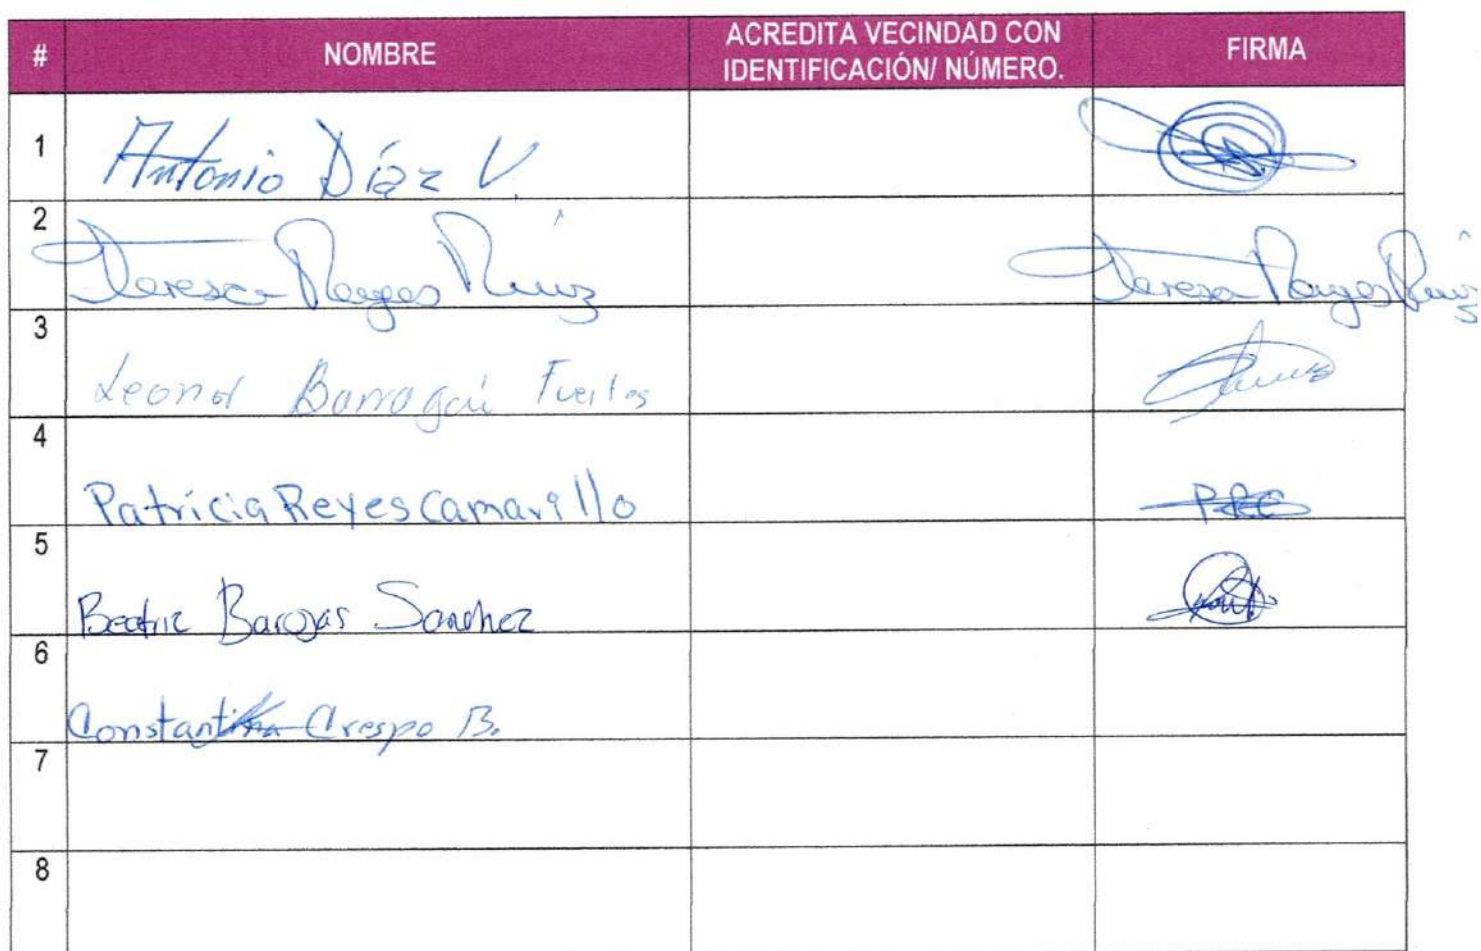 # NOMBRE ACREDITA VECINDAD CON IDENTIFICACIÓN/ NÚMERO. FIRMA
1 Antonio Díaz V.
2 Teresa Reyes Ruiz Teresa Reyes Ruiz
3 Leonor Barragán Fuertes
4 Patricia Reyes Camarillo PRC
5 Beatriz Barojas Sanchez
6 Constantina Crespo B.
7
8